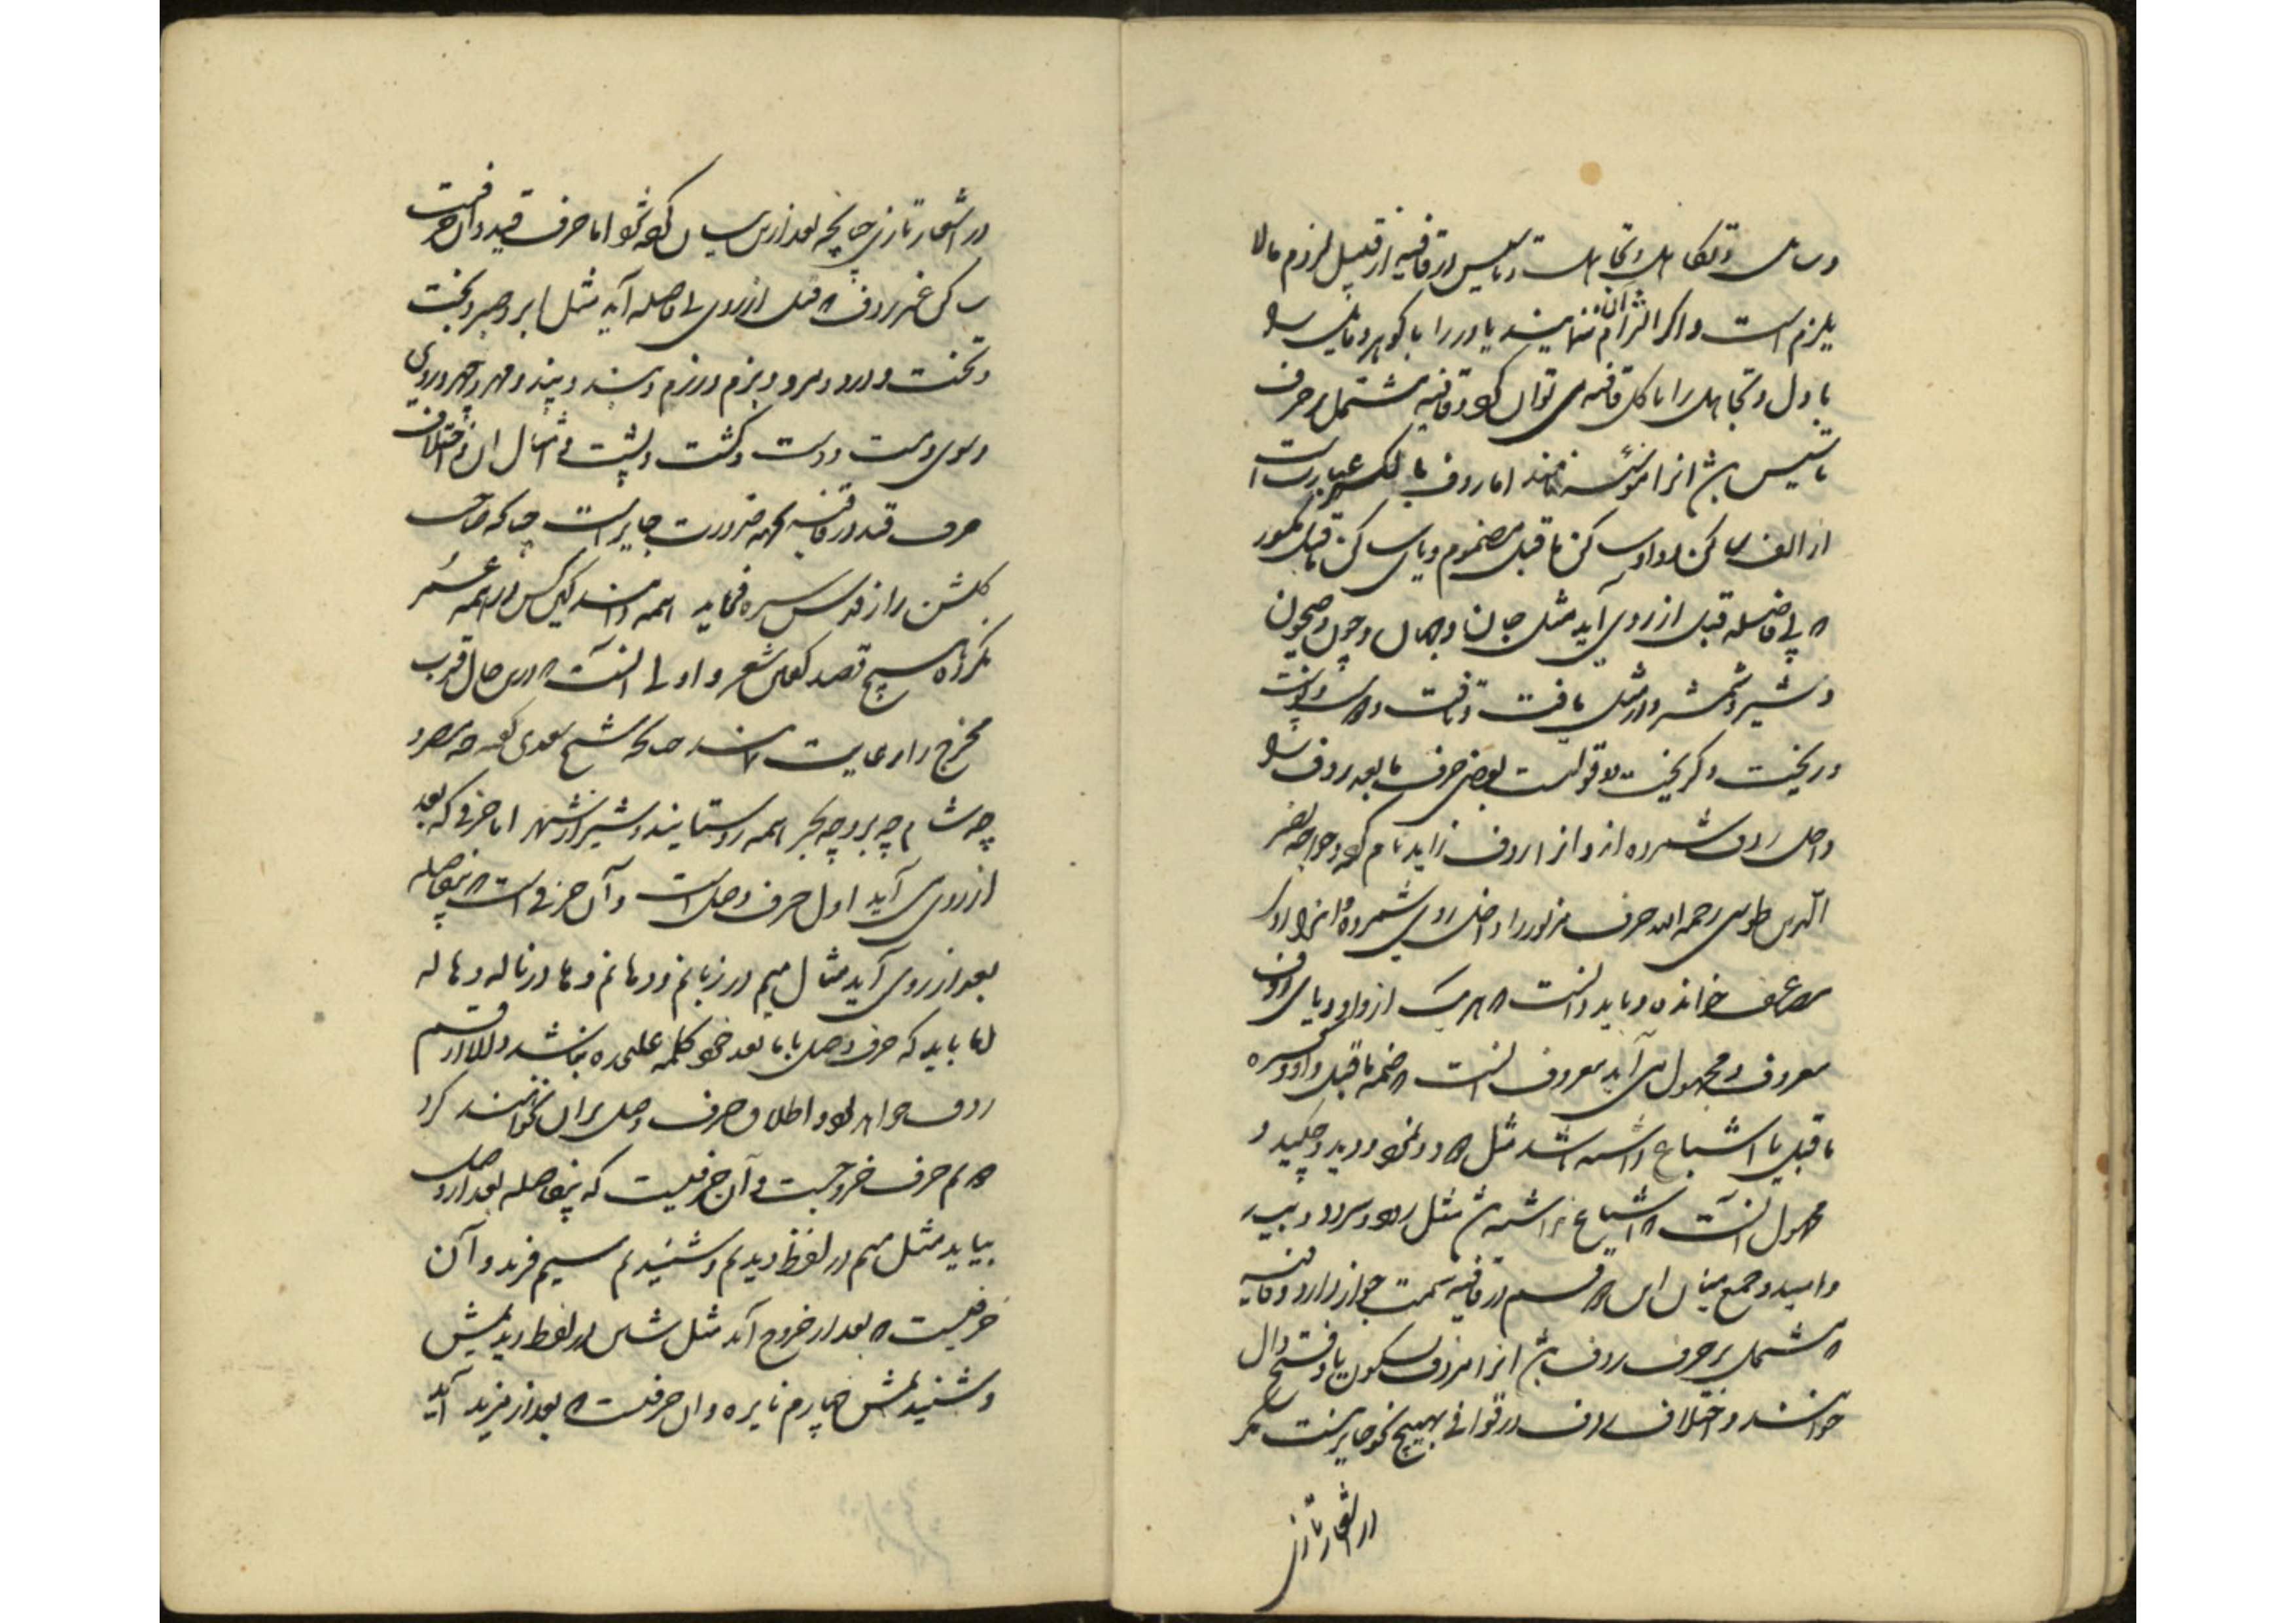 و تکاهل و تجاهل و تاسیس در قافیه از قبیل لزوم مالا
یلزم است و اگر التزام آن ننمایند یاور را با گوهر و مایل را
با دل و تجاهل را با کل قافیه می توان کرد و قافیه مشتمل بر حرف
تاسیس باشد انرا موسسه نامند اما ردف بالکسر عبارت است
از الف ساکن و واو ساکن ماقبل مضموم و یای ساکن ماقبل مکسور
که بی فاصله قبل از روی آید مثل جان و جهان و چون و جیحون
و شیر و شمشیر و در مثل یافت و تافت و
و ریخت و گریخت دو قولست بعضی حرف مابعد ردف را
داخل ردف شمرده اند و انرا ردف زاید نام کرده و خواجه نصیر
الدین طوسی رحمه الله حرف مزبور را داخل روی شمرده و انرا روی
مضاعف خوانده و باید دانست که هر یک از واو و یای ردف
معروف و مجهول می آید معروف انست که ضمه ماقبل واو و کسره
ماقبل یا اشباع داشته باشد مثل دود و نمود و دید و چکید و
مجهول آنست که اشباع نداشته باشد مثل
و امید و جمع میان این دو قسم در قافیه سمت جواز ندارد و قافیه
که مشتمل بر حرف ردف باشد انرا مردف بسکون را و فتح دال
خوانند و اختلاف ردف در قوافی بهیچ نحو جایز نیست مگر
در اشعار تازی
در اشعار تازی چنانچه بعد ازین بیان کرده شود اما حرف قید و آن حرفیست
ساکن غیر ردف که قبل از روی بی فاصله آید مثل ابر و صبر و بخت
و تخت و درد و مرد و بزم و رزم و بند و پند و مهر و چهر
و مست و دست و کشت و پشت و امثال ان و اختلاف
حرف قید در قافیه بجهه ضرورت جایز است چنانکه صاحب
گلشن راز قدس سره فرماید همه دانند کین کس در همه عمر
نکرده هیچ قصد گفتن شعر و اولی انست که درین حال قرب
مخرج را رعایت نمایند چنانکه شیخ سعدی گوید چه مصر و
چه شام چه بر و چه بحر همه روستایند و شیراز شهر اما حرفی که بعد
از روی آید اول حرف وصل است و آن حرفی است که بیفاصله
بعد از روی آید مثال میم در زبانم و دهانم و ها در ناله و هاله
اما باید که حرف وصل با مابعد خود کلمه علیحده نباشد والا از قسم
ردیف خواهد بود و اطلاق حرف وصل بران نتوانند کرد
دویم حرف خروجست و آن حرفیست که بیفاصله بعد از وصل
بیاید مثل میم در لفظ دیدیم و شنیدیم سیم مزید و آن
حرفیست که بعد از خروج آید مثل شین در لفظ دیدیمش
و شنیدیمش چهارم نایره و ان حرفیست که بعد از مزید آید